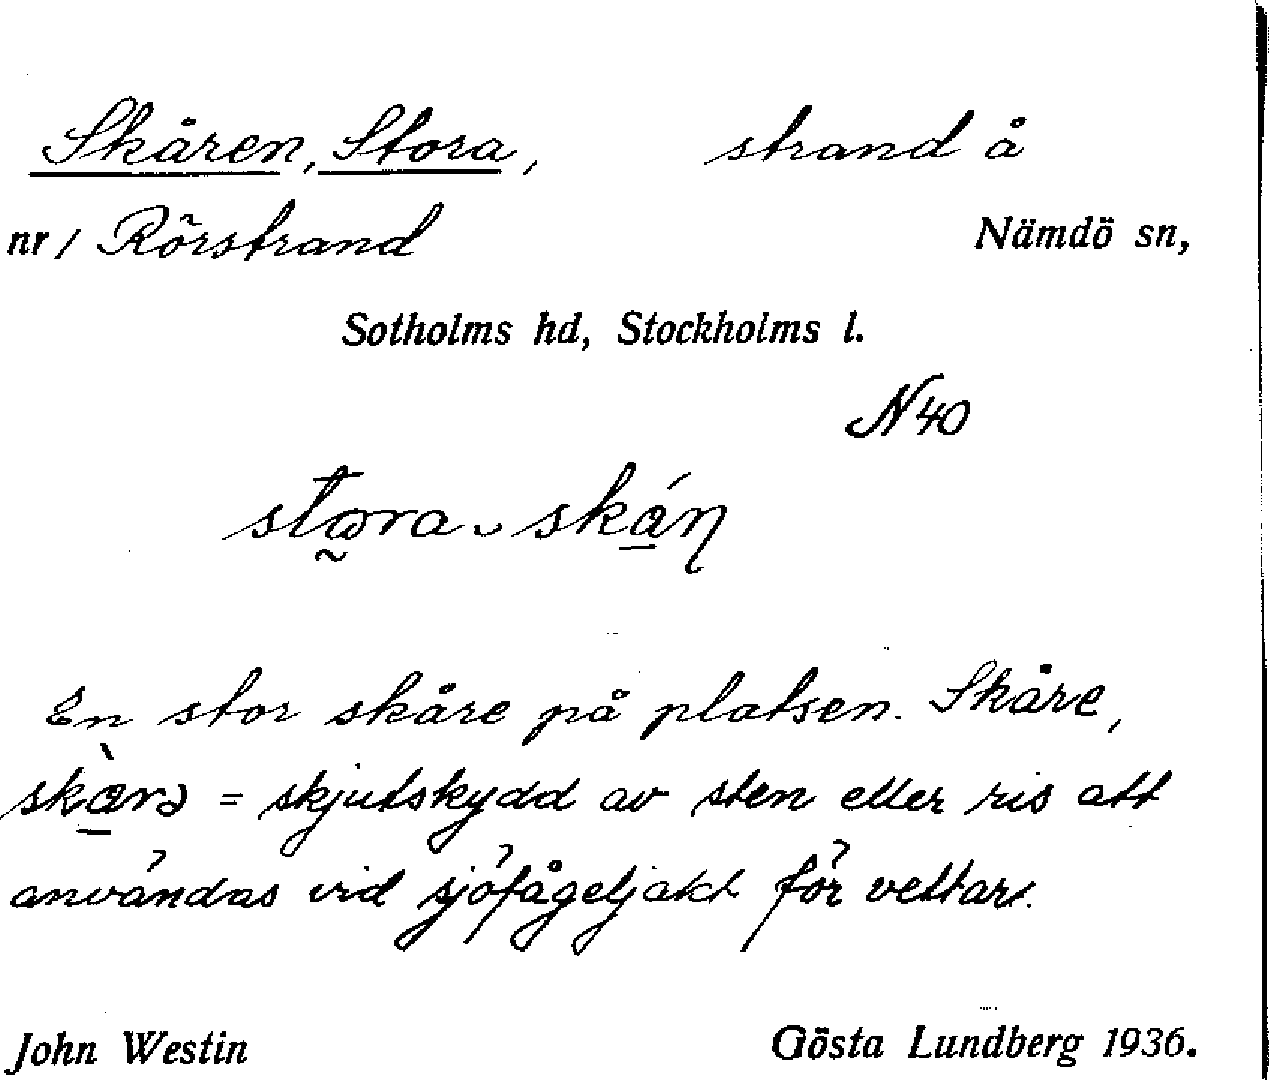 Skåren, Stora, strand å
nr/ Rörstrand Nämdö sn,
Sotholms hd, Stockholms l.
N40
En stor skåre på platsen. Skåre,
= skjutskydd av sten eller ris att
användas vid sjöfågeljakt för vettar.
John Westin Gösta Lundberg 1936.